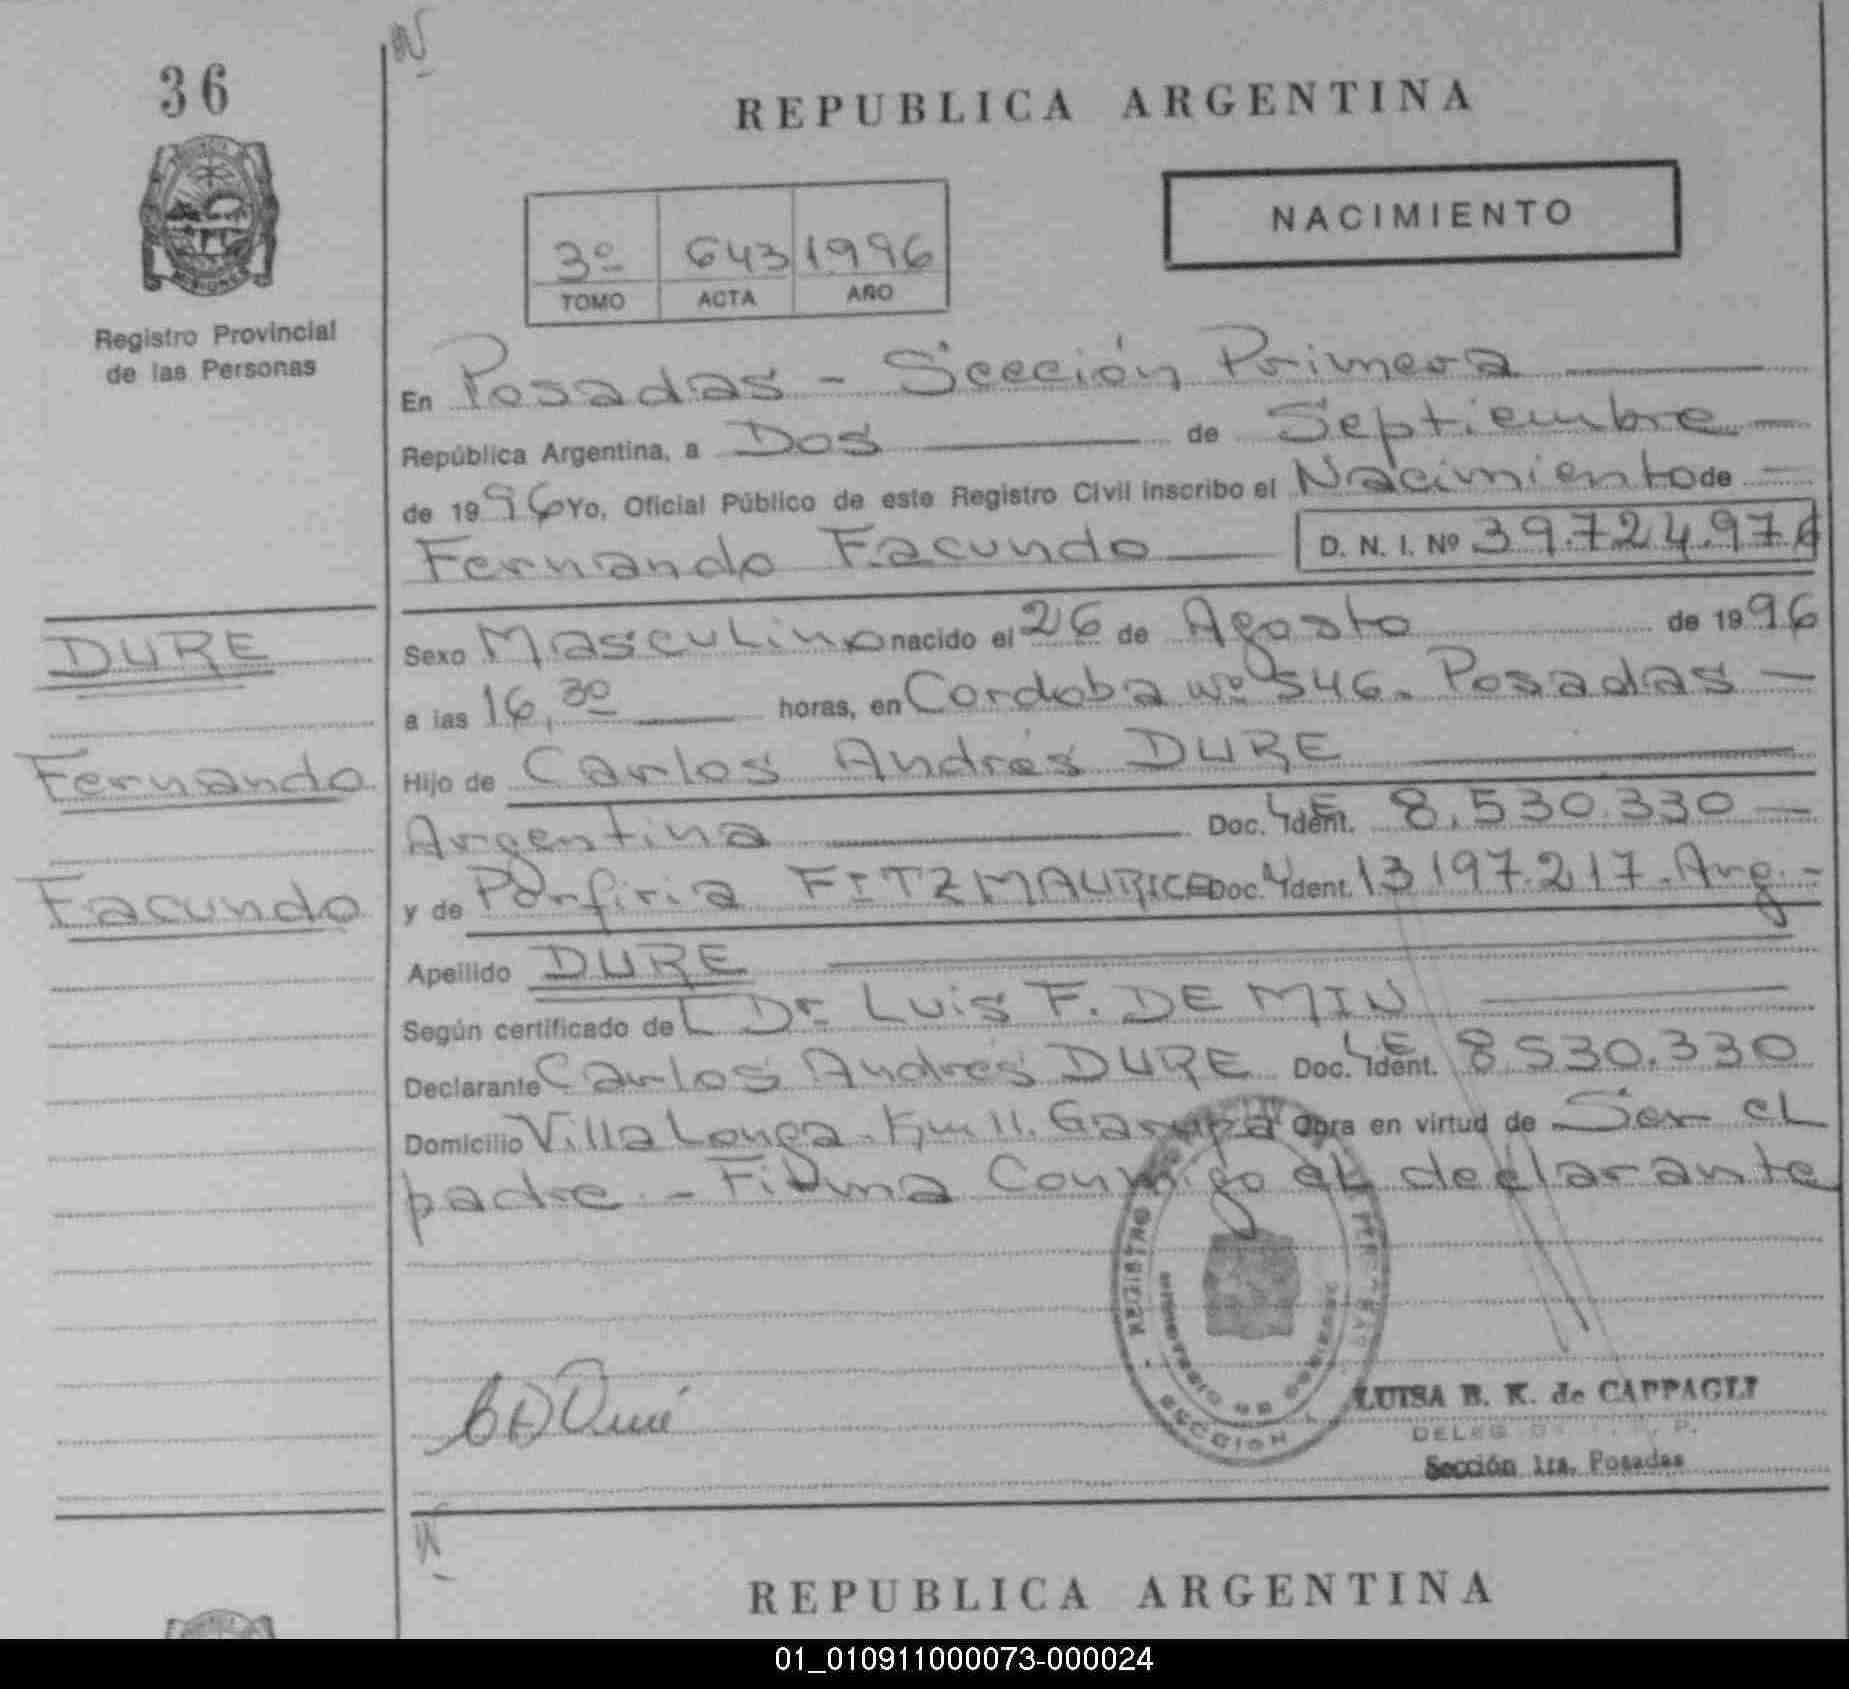 36
REPUBLICA ARGENTINA
NACIMIENTO
3º 643 1996
TOMO ACTA AÑO
Registro Provincial
de las Personas
En Posadas - Sección Primera
República Argentina, a Dos de Septiembre
de 1996 Yo, Oficial Público de este Registro Civil inscribo el Nacimiento de
Fernando Facundo D. N. I. Nº 39.724.976
DURE
Sexo Masculino nacido el 26 de Agosto de 1996
a las 16,30 horas, en Cordoba Nº 546. Posadas
Fernando
Hijo de Carlos Andrés DURE
Argentina Doc. Ident. LE 8.530.330
Facundo
y de Porfiria FITZMAURICE Doc. Ident. 13197.217. Arg.
Apellido DURE
Según certificado del Dr. Luis F. DE MIN
Declarante Carlos Andrés DURE Doc. Ident. LE 8.530.330
Domicilio Villa Longa. Km 11. Garupá Obra en virtud de Ser el
padre. - Firma Conmigo el declarante
REGISTRO
MINISTERIO DE GOBIERNO
SECCION 1
LUISA B. K. de CAPPAGLI
Sección 1ra. Posadas
REPUBLICA ARGENTINA
01_010911000073-000024